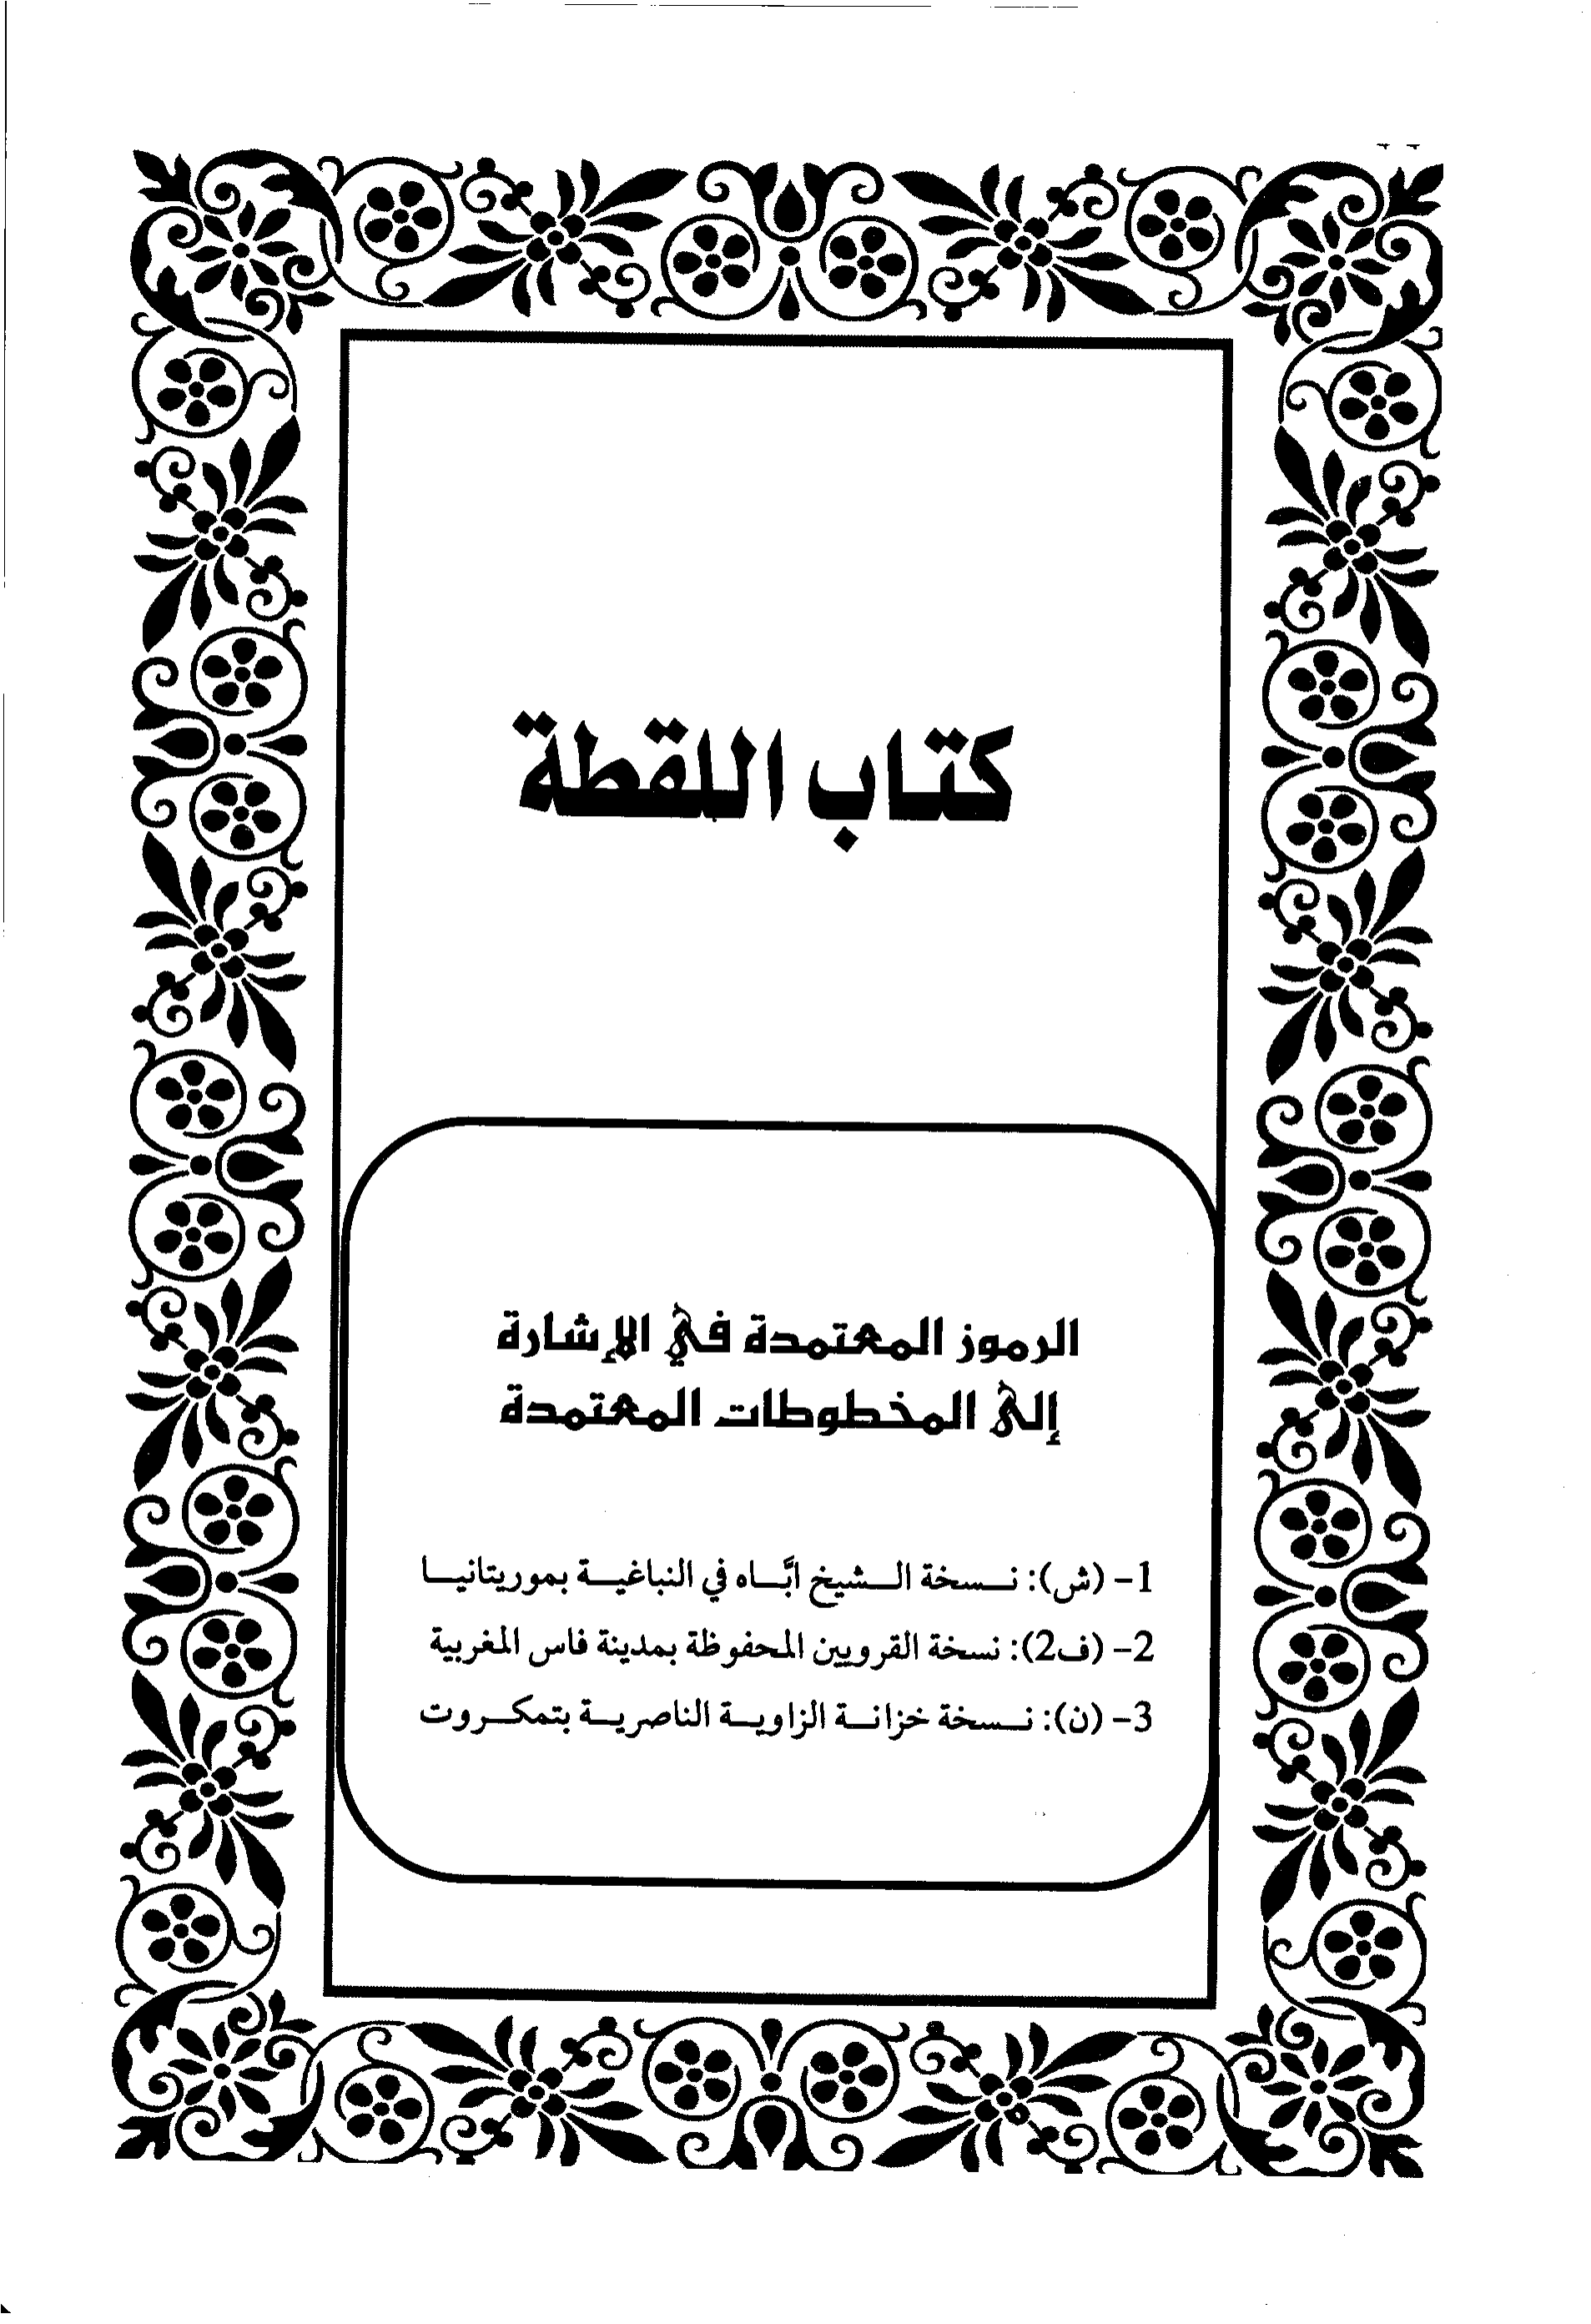 كتاب اللقطة
الرموز المعتمدة في الإشارة
إلى المخطوطات المعتمدة
1- (ش): نسخة الشيخ ابَّاه في النباغية بموريتانيا
2- (ف2): نسخة القرويين المحفوظة بمدينة فاس المغربية
3- (ن): نسخة خزانة الزاوية الناصرية بتمكروت